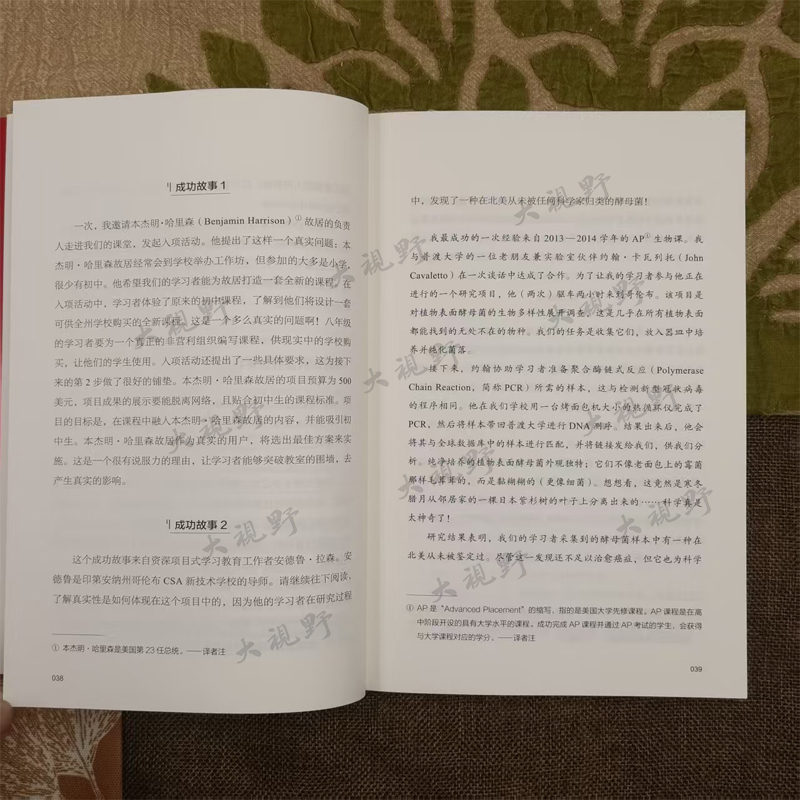 成功故事 1
一次，我邀请本杰明·哈里森（Benjamin Harrison）①故居的负责
人走进我们的课堂，发起入项活动。他提出了这样一个真实问题：本
杰明·哈里森故居经常会到学校举办工作坊，但参加的大多是小学，
很少有初中。他希望我们的学习者能为故居打造一套全新的课程。在
入项活动中，学习者体验了原来的初中课程，了解到他们将设计一套
可供全州学校购买的全新课程。这是一个多么真实的问题啊！八年级
的学习者要为一个真正的非营利组织编写课程，供现实中的学校购
买，让他们的学生使用。入项活动还提出了一些具体要求，这为接下
来的第 2 步做了很好的铺垫。本杰明·哈里森故居的项目预算为 500
美元，项目成果的展示要能脱离网络，且贴合初中生的课程标准。项
目的目标是，在课程中融入本杰明·哈里森故居的内容，并能吸引初
中生。本杰明·哈里森故居作为真实的用户，将选出最佳方案来实
施。这是一个很有说服力的理由，让学习者能够突破教室的围墙，去
产生真实的影响。
成功故事 2
这个成功故事来自资深项目式学习教育工作者安德鲁·拉森。安
德鲁是印第安纳州哥伦布 CSA 新技术学校的导师。请继续往下阅读，
了解真实性是如何体现在这个项目中的，因为他的学习者在研究过程
① 本杰明·哈里森是美国第 23 任总统。——译者注
038
中，发现了一种在北美从未被任何科学家归类的酵母菌！
我最成功的一次经验来自 2013—2014 学年的 AP①生物课。我
与普渡大学的一位老朋友兼实验室伙伴约翰·卡瓦列托（John
Cavaletto）在一次谈话中达成了合作。为了让我的学习者参与他正在
进行的一个研究项目，他（两次）驱车两小时来到哥伦布。该项目是
对植物表面酵母菌的生物多样性展开调查。这是几乎在所有植物表面
都能找到的无处不在的物种。我们的任务是收集它们，放入器皿中培
养并纯化菌落。
接下来，约翰协助学习者准备聚合酶链式反应（Polymerase
Chain Reaction，简称 PCR）所需的样本，这与检测新型冠状病毒
的程序相同。他在我们学校用一台烤面包机大小的热循环仪完成了
PCR，然后将样本带回普渡大学进行 DNA 测序。结果出来后，他会
将其与全球数据库中的样本进行匹配，并将链接发给我们，供我们分
析。纯净培养的植物表面酵母菌外观独特：它们不像老面包上的霉菌
那样毛茸茸的，而是黏糊糊的（更像细菌）。想想看，这竟然是寒冬
腊月从邻居家的一棵日本紫杉树的叶子上分离出来的……科学真是
太神奇了！
研究结果表明，我们的学习者采集到的酵母菌样本中有一种在
北美从未被鉴定过。尽管这一发现还不足以治愈癌症，但它也为科学
① AP 是“Advanced Placement”的缩写，指的是美国大学先修课程。AP 课程是在高
中阶段开设的具有大学水平的课程。成功完成 AP 课程并通过 AP 考试的学生，会获得
与大学课程对应的学分。——译者注
039
大视野
大视野
大视野
大视野
大视野
大视野
大视野
大视野
大视野
大视野
大视野